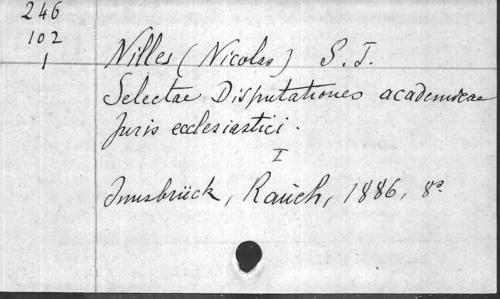 246
102
1
Nilles (Nicolas) S. J.
Selectae Disputationes academicae
Juris ecclesiastici.
I
Innsbrück, Rauch, 1886, 8°.